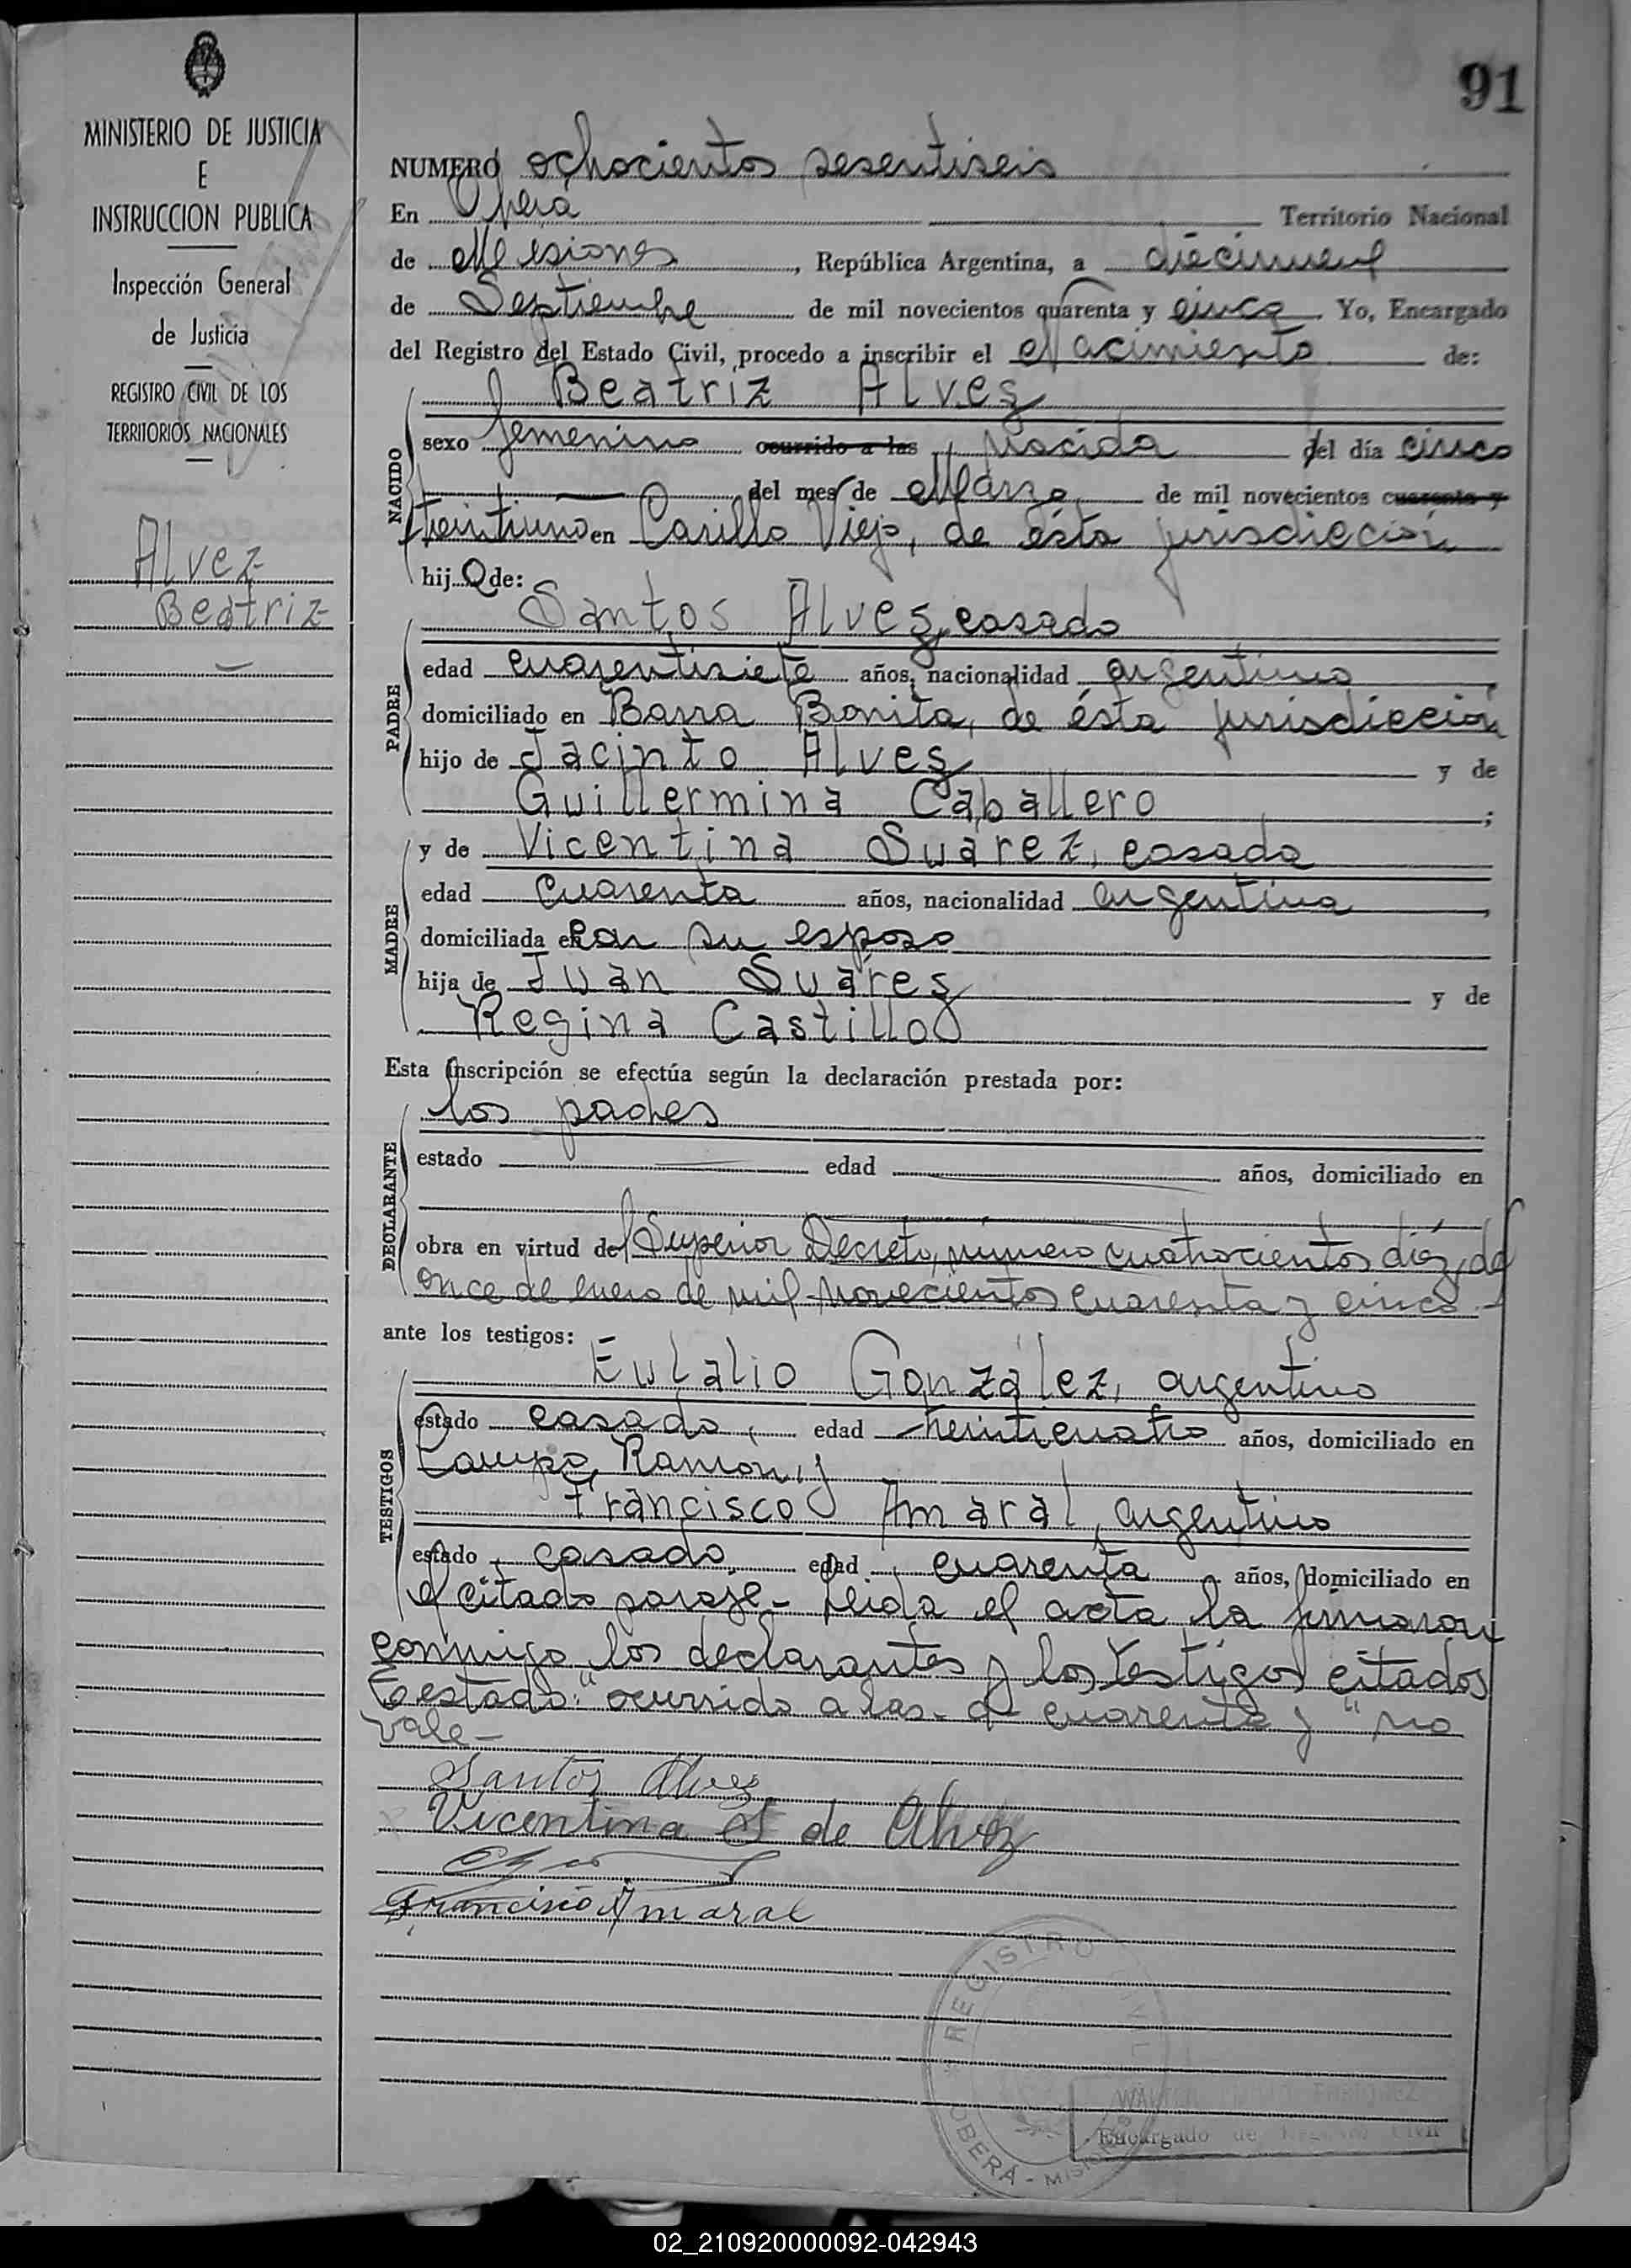 91
MINISTERIO DE JUSTICIA
E
INSTRUCCION PUBLICA
Inspección General
de Justicia
REGISTRO CIVIL DE LOS
TERRITORIOS NACIONALES
Alvez
Beatriz
NUMERO ochocientos sesentiseis
En Oberá Territorio Nacional
de Misiones, República Argentina, a diecinueve
de Septiembre de mil novecientos quarenta y cinco. Yo, Encargado
del Registro del Estado Civil, procedo a inscribir el Nacimiento de:
NACIDO
Beatriz Alvez
sexo femenino ocurrido a las nacida del día cinco
del mes de Marzo de mil novecientos cuarenta y
treintiuno en Casilla Viejo, de ésta jurisdiccion
hij a de:
PADRE
Santos Alvez, casado
edad cuarentisiete años, nacionalidad argentino
domiciliado en Barra Bonita, de ésta jurisdicción
hijo de Jacinto Alvez y de
Guillermina Caballero ;
MADRE
y de Vicentina Suarez, casada
edad cuarenta años, nacionalidad argentina
domiciliada en con su esposo
hija de Juan Suárez y de
Regina Castillo
Esta inscripción se efectúa según la declaración prestada por:
DECLARANTE
los padres
estado edad años, domiciliado en
obra en virtud del Superior Decreto, número cuatrocientos diéz, del
once de enero de mil novecientos cuarenta y cinco.-
ante los testigos:
TESTIGOS
Eulalio González, argentino
estado casado, edad treinticuatro años, domiciliado en
Campo Ramón, y
Francisco Amaral, argentino
estado casado edad cuarenta años, domiciliado en
el citado paraje- Leida el acta la firmaron
conmigo los declarantes y los testigos citados
Testado: "ocurrido a las- a- cuarenta y" no
vale-
Santos Alvez
Vicentina S de Alvez
Francisco Amaral
REGISTRO CIVIL
OBERÁ - MISIONES
Encargado de Registro Civil
02_210920000092-042943